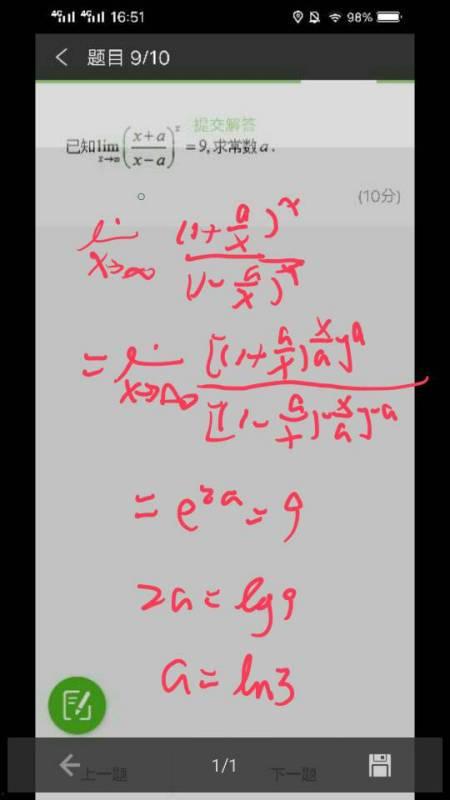 4G 4G 16:51 98%
题目 9/10
提交解答
已知lim x→∞ ((x+a)/(x-a))^x =9,求常数 a.
(10分)
lim x→∞ (1+a/x)^x / (1-a/x)^x
= lim x→∞ [(1+a/x)^(x/a)]^a / [(1-a/x)^(-x/a)]^(-a)
= e^(2a) = 9
2a = lg9
a = ln3
1/1
上一题 下一题